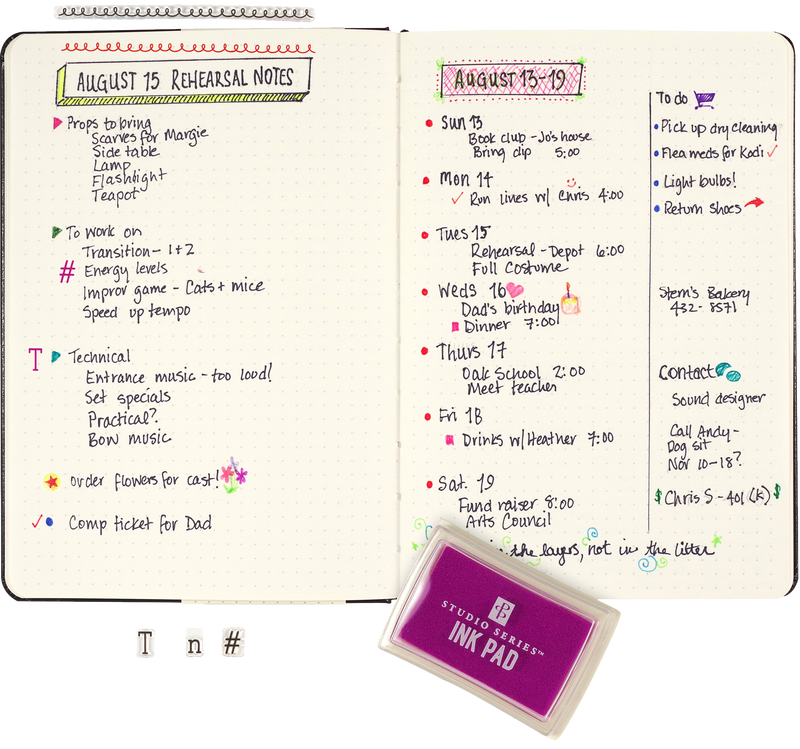 AUGUST 15 REHEARSAL NOTES
Props to bring
Scarves for Margie
Side table
Lamp
Flashlight
Teapot
To Work on
Transition - 1 + 2
# Energy levels
Improv game - Cats + mice
Speed up tempo
T Technical
Entrance music - too loud!
Set specials
Practical?
Bow music
order flowers for cast!
Comp ticket for Dad
AUGUST 13-19
Sun 13
Book club - Jo's house
Bring dip 5:00
Mon 14
Run lines w/ Chris 4:00
Tues 15
Rehearsal - Depot 6:00
Full Costume
Weds 16
Dad's birthday
Dinner 7:00
Thurs 17
Oak School 2:00
Meet teacher
Fri 18
Drinks w/ Heather 7:00
Sat. 19
Fund raiser 8:00
Arts Council
the layers, not in the litter
To do
Pick up dry cleaning
Flea meds for Kodi
Light bulbs!
Return Shoes
Stern's Bakery
432-8571
Contact
Sound designer
Call Andy -
Dog sit
Nov 10-18?
$ Chris S - 401 (K) $
T n #
STUDIO SERIES™
INK PAD